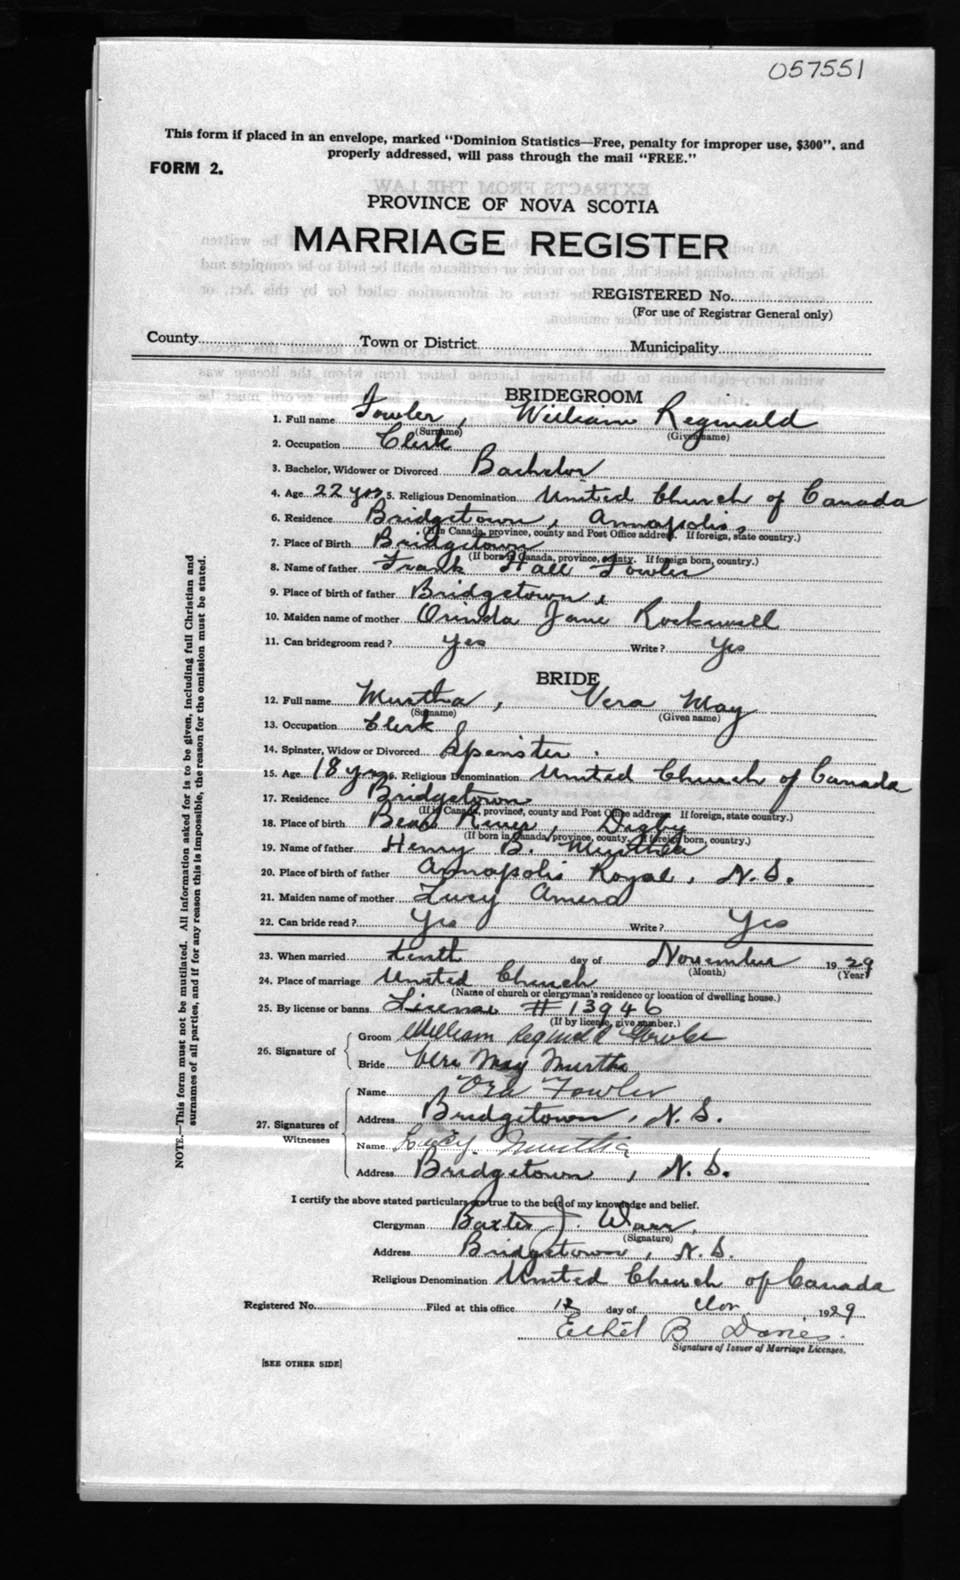 057551
This form if placed in an envelope, marked "Dominion Statistics—Free, penalty for improper use, $300", and
properly addressed, will pass through the mail "FREE."
FORM 2.
PROVINCE OF NOVA SCOTIA
MARRIAGE REGISTER
REGISTERED No.
(For use of Registrar General only)
County Town or District Municipality
BRIDEGROOM
1. Full name Fowler, William Reginald
(Surname) (Given name)
2. Occupation Clerk
3. Bachelor, Widower or Divorced Bachelor
4. Age 22 yrs 5. Religious Denomination United Church of Canada
6. Residence Bridgetown, Annapolis
(If in Canada, province, county and Post Office address. If foreign, state country.)
7. Place of Birth Bridgetown
(If born in Canada, province, county. If foreign born, country.)
8. Name of father Frank Hall Fowler
9. Place of birth of father Bridgetown,
10. Maiden name of mother Orinda Jane Rockwell
11. Can bridegroom read? Yes Write? Yes
BRIDE
12. Full name Murtha, Vera May
(Surname) (Given name)
13. Occupation Clerk
14. Spinster, Widow or Divorced Spinster.
15. Age 18 yrs 16. Religious Denomination United Church of Canada
17. Residence Bridgetown
(If in Canada, province, county and Post Office address If foreign, state country.)
18. Place of birth Bear River, Digby
(If born in Canada, province, county. If foreign born, country.)
19. Name of father Henry B. Murtha
20. Place of birth of father Annapolis Royal, N.S.
21. Maiden name of mother Lucy
22. Can bride read? Yes Write? Yes
23. When married tenth day of November 1929
(Month) (Year)
24. Place of marriage United Church
(Name of church or clergyman's residence or location of dwelling house.)
25. By license or banns License # 13946
(If by license, give number.)
26. Signature of
Groom William Reginald Fowler
Bride Vera May Murtha
27. Signatures of Witnesses
Name Ora Fowler
Address Bridgetown, N.S.
Name Lucy Murtha
Address Bridgetown, N.S.
I certify the above stated particulars are true to the best of my knowledge and belief.
Clergyman Baxter J. Warr,
(Signature)
Address Bridgetown, N.S.
Religious Denomination United Church of Canada
Registered No. Filed at this office 12 day of Nov 1929
Ethel B Davies.
Signature of Issuer of Marriage Licenses.
[SEE OTHER SIDE]
NOTE.—This form must not be mutilated. All information asked for is to be given, including full Christian and
surnames of all parties, and if for any reason this is impossible, the reason for the omission must be stated.